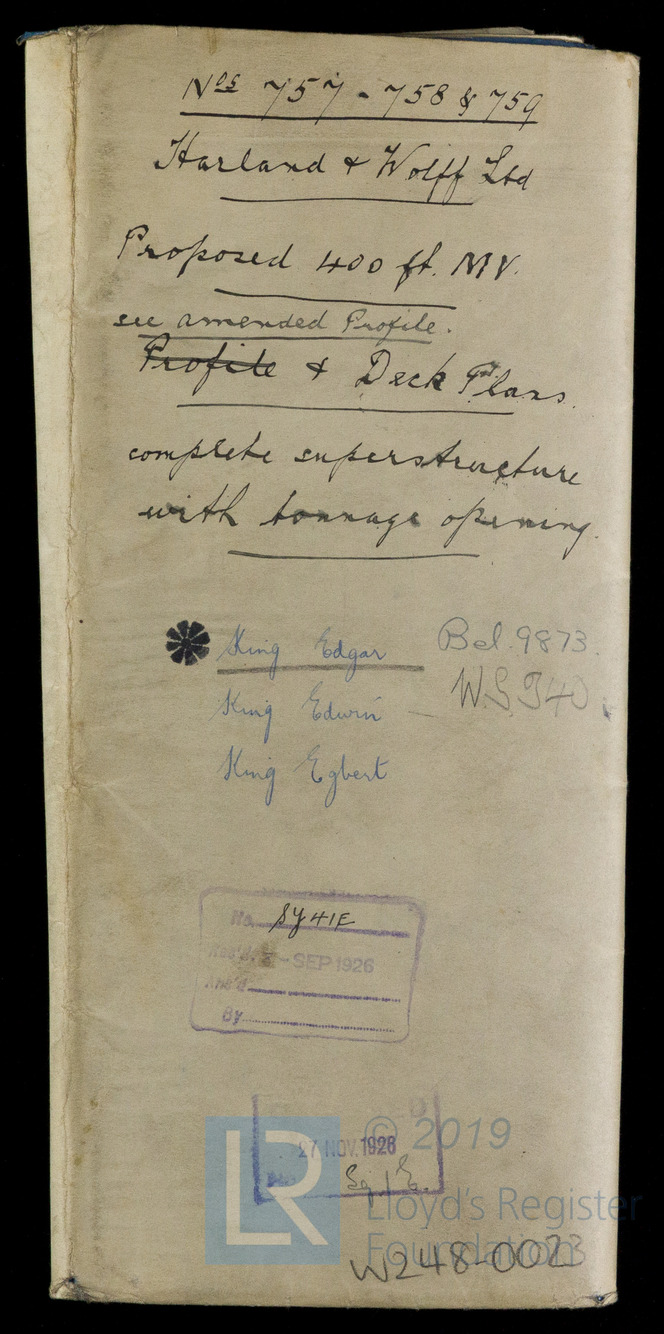 Nos 757 - 758 & 759
Harland & Wolff Ltd
Proposed 400 ft. MV.
see amended Profile.
Profile & Deck Plans.
complete superstructure
with tonnage opening.
King Edgar Bel. 9873.
King Edwin — W.S 940
King Egbert
No.
Rec'd - SEP 1926
Ans'd
By
27 NOV. 1926
LR
© 2019
Lloyd's Register
Foundation
W248-0023